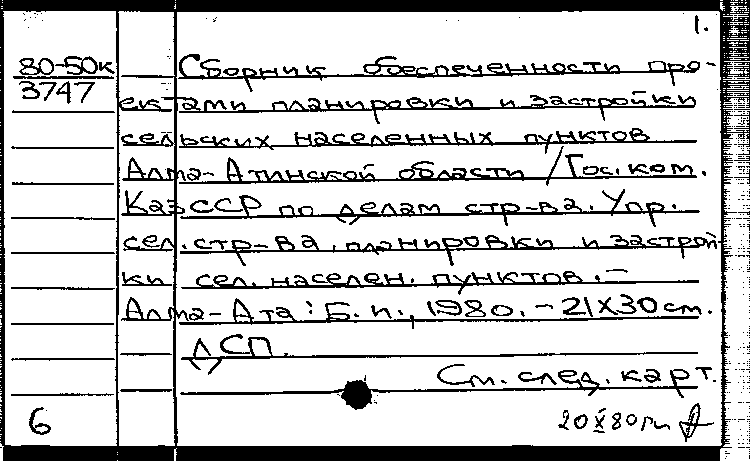 1.
80-50к
3747
Сборник обеспеченности про-
ектами планировки и застройки
сельских населенных пунктов
Алма-Атинской области /Гос. ком.
КазССР по делам стр-ва. Упр.
сел. стр-ва, планировки и застрой-
ки сел. населен. пунктов. -
Алма-Ата : Б. и., 1980. - 21X30 см.
ДСП.
См. след. карт.
6
20 X 80